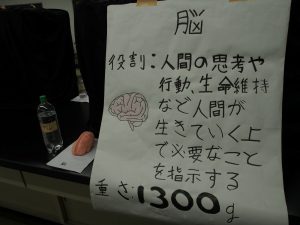 脳
役割:人間の思考や
行動、生命維持
など人間が
生きていく上
で必要なこと
を指示する
重さ:1300g